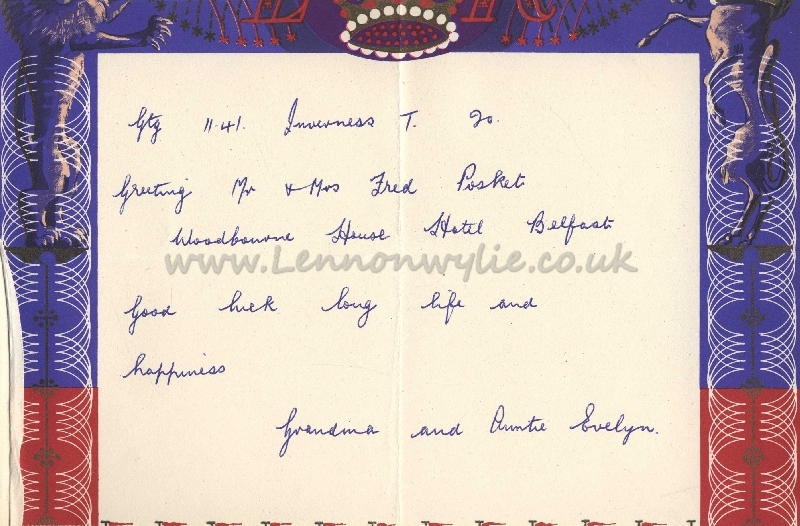 E R
Gtg 11.41. Inverness T. 20.
Greeting Mr & Mrs Fred Posket
Woodbourne House Hotel Belfast
www.Lennonwylie.co.uk
Good luck long life and
happiness
Grandma and Auntie Evelyn.